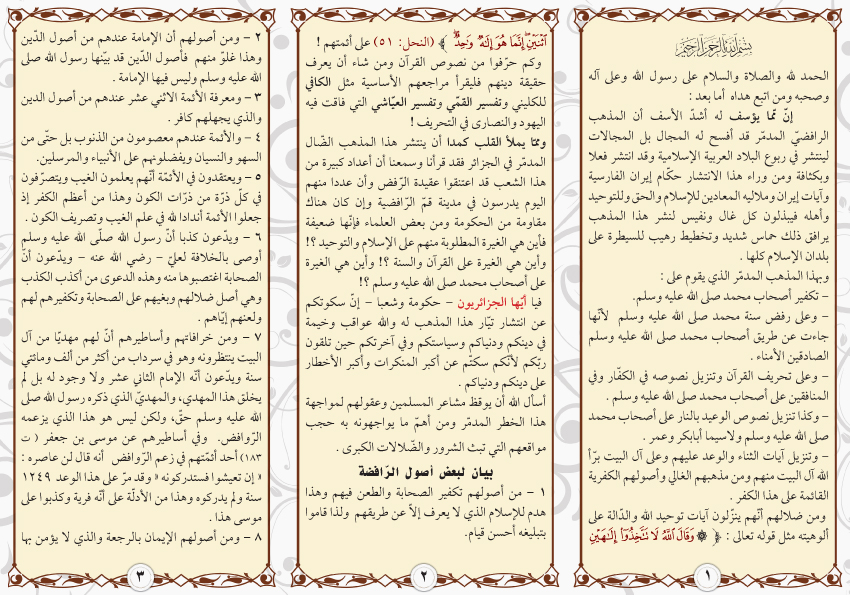 بسم الله الرحمن الرحيم
الحمد لله والصلاة والسلام على رسول الله وعلى آله
وصحبه ومن اتبع هداه أما بعد :
إنّ ممّا يؤسف له أشدّ الأسف أن المذهب
الرافضيّ المدمّر قد أفسح له المجال بل المجالات
لينتشر في ربوع البلاد العربية الإسلامية وقد انتشر فعلا
وبكثافة ومن وراء هذا الانتشار حكّام إيران الفارسية
وآيات إيران وملاليه المعادين للإسلام والحق وللتوحيد
وأهله فيبذلون كل غال ونفيس لنشر هذا المذهب
يرافق ذلك حماس شديد وتخطيط رهيب للسيطرة على
بلدان الإسلام كلها .
وبهذا المذهب المدمّر الذي يقوم على :
– تكفير أصحاب محمد صلى الله عليه وسلم.
– وعلى رفض سنة محمد صلى الله عليه وسلم لأنّها
جاءت عن طريق أصحاب محمد صلى الله عليه وسلم
الصادقين الأمناء .
– وعلى تحريف القرآن وتنزيل نصوصه في الكفّار وفي
المنافقين على أصحاب محمد صلى الله عليه وسلم .
– وكذا تنزيل نصوص الوعيد بالنار على أصحاب محمد
صلى الله عليه وسلم ولاسيما أبابكر وعمر .
– وتنزيل آيات الثناء والوعد عليهم وعلى آل البيت برّأ
الله آل البيت منهم ومن مذهبهم الغالي وأصولهم الكفرية
القائمة على هذا الكفر .
ومن ضلالهم أنّهم ينزّلون آيات توحيد الله والدّالة على
ألوهيته مثل قوله تعالى : ﴿ ۞ وَقَالَ ٱللَّهُ لَا تَتَّخِذُوٓا۟ إِلَـٰهَيْنِ
١
ٱثْنَيْنِ ۖ إِنَّمَا هُوَ إِلَـٰهٌ وَٰحِدٌ ۖ ﴾ (النحل: ٥١) على أئمتهم !
وكم حرّفوا من نصوص القرآن ومن شاء أن يعرف
حقيقة دينهم فليقرأ مراجعهم الأساسية مثل الكافي
للكليني وتفسير القمّي وتفسير العيّاشي التي فاقت فيه
اليهود والنصارى في التحريف !
وممّا يملأ القلب كمدا أن ينتشر هذا المذهب الضّال
المدمّر في الجزائر فقد قرأنا وسمعنا أن أعداد كبيرة من
هذا الشعب قد اعتنقوا عقيدة الرّفض وأن عددا منهم
اليوم يدرسون في مدينة قمّ الرّافضية وإن كان هناك
مقاومة من الحكومة ومن بعض العلماء فإنّها ضعيفة
فأين هي الغيرة المطلوبة منهم على الإسلام والتوحيد ؟!
وأين هي الغيرة على القرآن والسنة ؟! وأين هي الغيرة
على أصحاب محمد صلى الله عليه وسلم ؟!
فيا أيّها الجزائريون – حكومة وشعبا – إنّ سكوتكم
عن انتشار تيّار هذا المذهب له والله عواقب وخيمة
في دينكم ودنياكم وسياستكم وفي آخرتكم حين تلقون
ربّكم لأنّكم سكتّم عن أكبر المنكرات وأكبر الأخطار
على دينكم ودنياكم .
أسأل الله أن يوقظ مشاعر المسلمين وعقولهم لمواجهة
هذا الخطر المدمّر ومن أهمّ ما يواجهونه به حجب
مواقعهم التي تبث الشرور والضّلالات الكبرى .
بيان لبعض أصول الرّافضة
١ – من أصولهم تكفير الصحابة والطعن فيهم وهذا
هدم للإسلام الذي لا يعرف إلاّ عن طريقهم ولذا قاموا
بتبليغه أحسن قيام.
٢
٢ – ومن أصولهم أن الإمامة عندهم من أصول الدّين
وهذا غلوّ منهم فأصول الدّين قد بيّنها رسول الله صلى
الله عليه وسلم وليس فيها الإمامة .
٣ – ومعرفة الأئمة الاثني عشر عندهم من أصول الدين
والذي يجهلهم كافر .
٤ – والأئمة عندهم معصومون من الذنوب بل حتّى من
السهو والنسيان ويفضلونهم على الأنبياء والمرسلين.
٥ – ويعتقدون في الأئمّة أنّهم يعلمون الغيب ويتصرّفون
في كلّ ذرّة من ذرّات الكون وهذا من أعظم الكفر إذ
جعلوا الأئمة أندادا لله في علم الغيب وتصريف الكون .
٦ – ويدّعون كذبا أنّ رسول الله صلّى الله عليه وسلم
أوصى بالخلافة لعليّ – رضي الله عنه – ويدعون أنّ
الصحابة اغتصبوها منه وهذه الدعوى من أكذب الكذب
وهي أصل ضلالهم وبغيهم على الصحابة وتكفيرهم لهم
ولعنهم إيّاهم .
٧ – ومن خرافاتهم وأساطيرهم أنّ لهم مهديّا من آل
البيت ينتظرونه وهو في سرداب من أكثر من ألف ومائتي
سنة ويدّعون أنّه الإمام الثاني عشر ولا وجود له بل لم
يخلق هذا المهدي، والمهديّ الذي ذكره رسول الله صلى
الله عليه وسلم حقّ، ولكن ليس هو هذا الذي يزعمه
الرّوافض. وفي أساطيرهم عن موسى بن جعفر ( ت
١٨٣) أحد أئمّتهم في زعم الرّوافض أنه قال لن عاصره :
« إن تعيشوا فستدركونه » وقد مرّ على هذا الوعد ١٢٤٩
سنة ولم يدركوه وهذا من الأدلّة على أنّه فرية وكذبوا على
موسى هذا .
٨ – ومن أصولهم الإيمان بالرجعة والذي لا يؤمن بها
٣